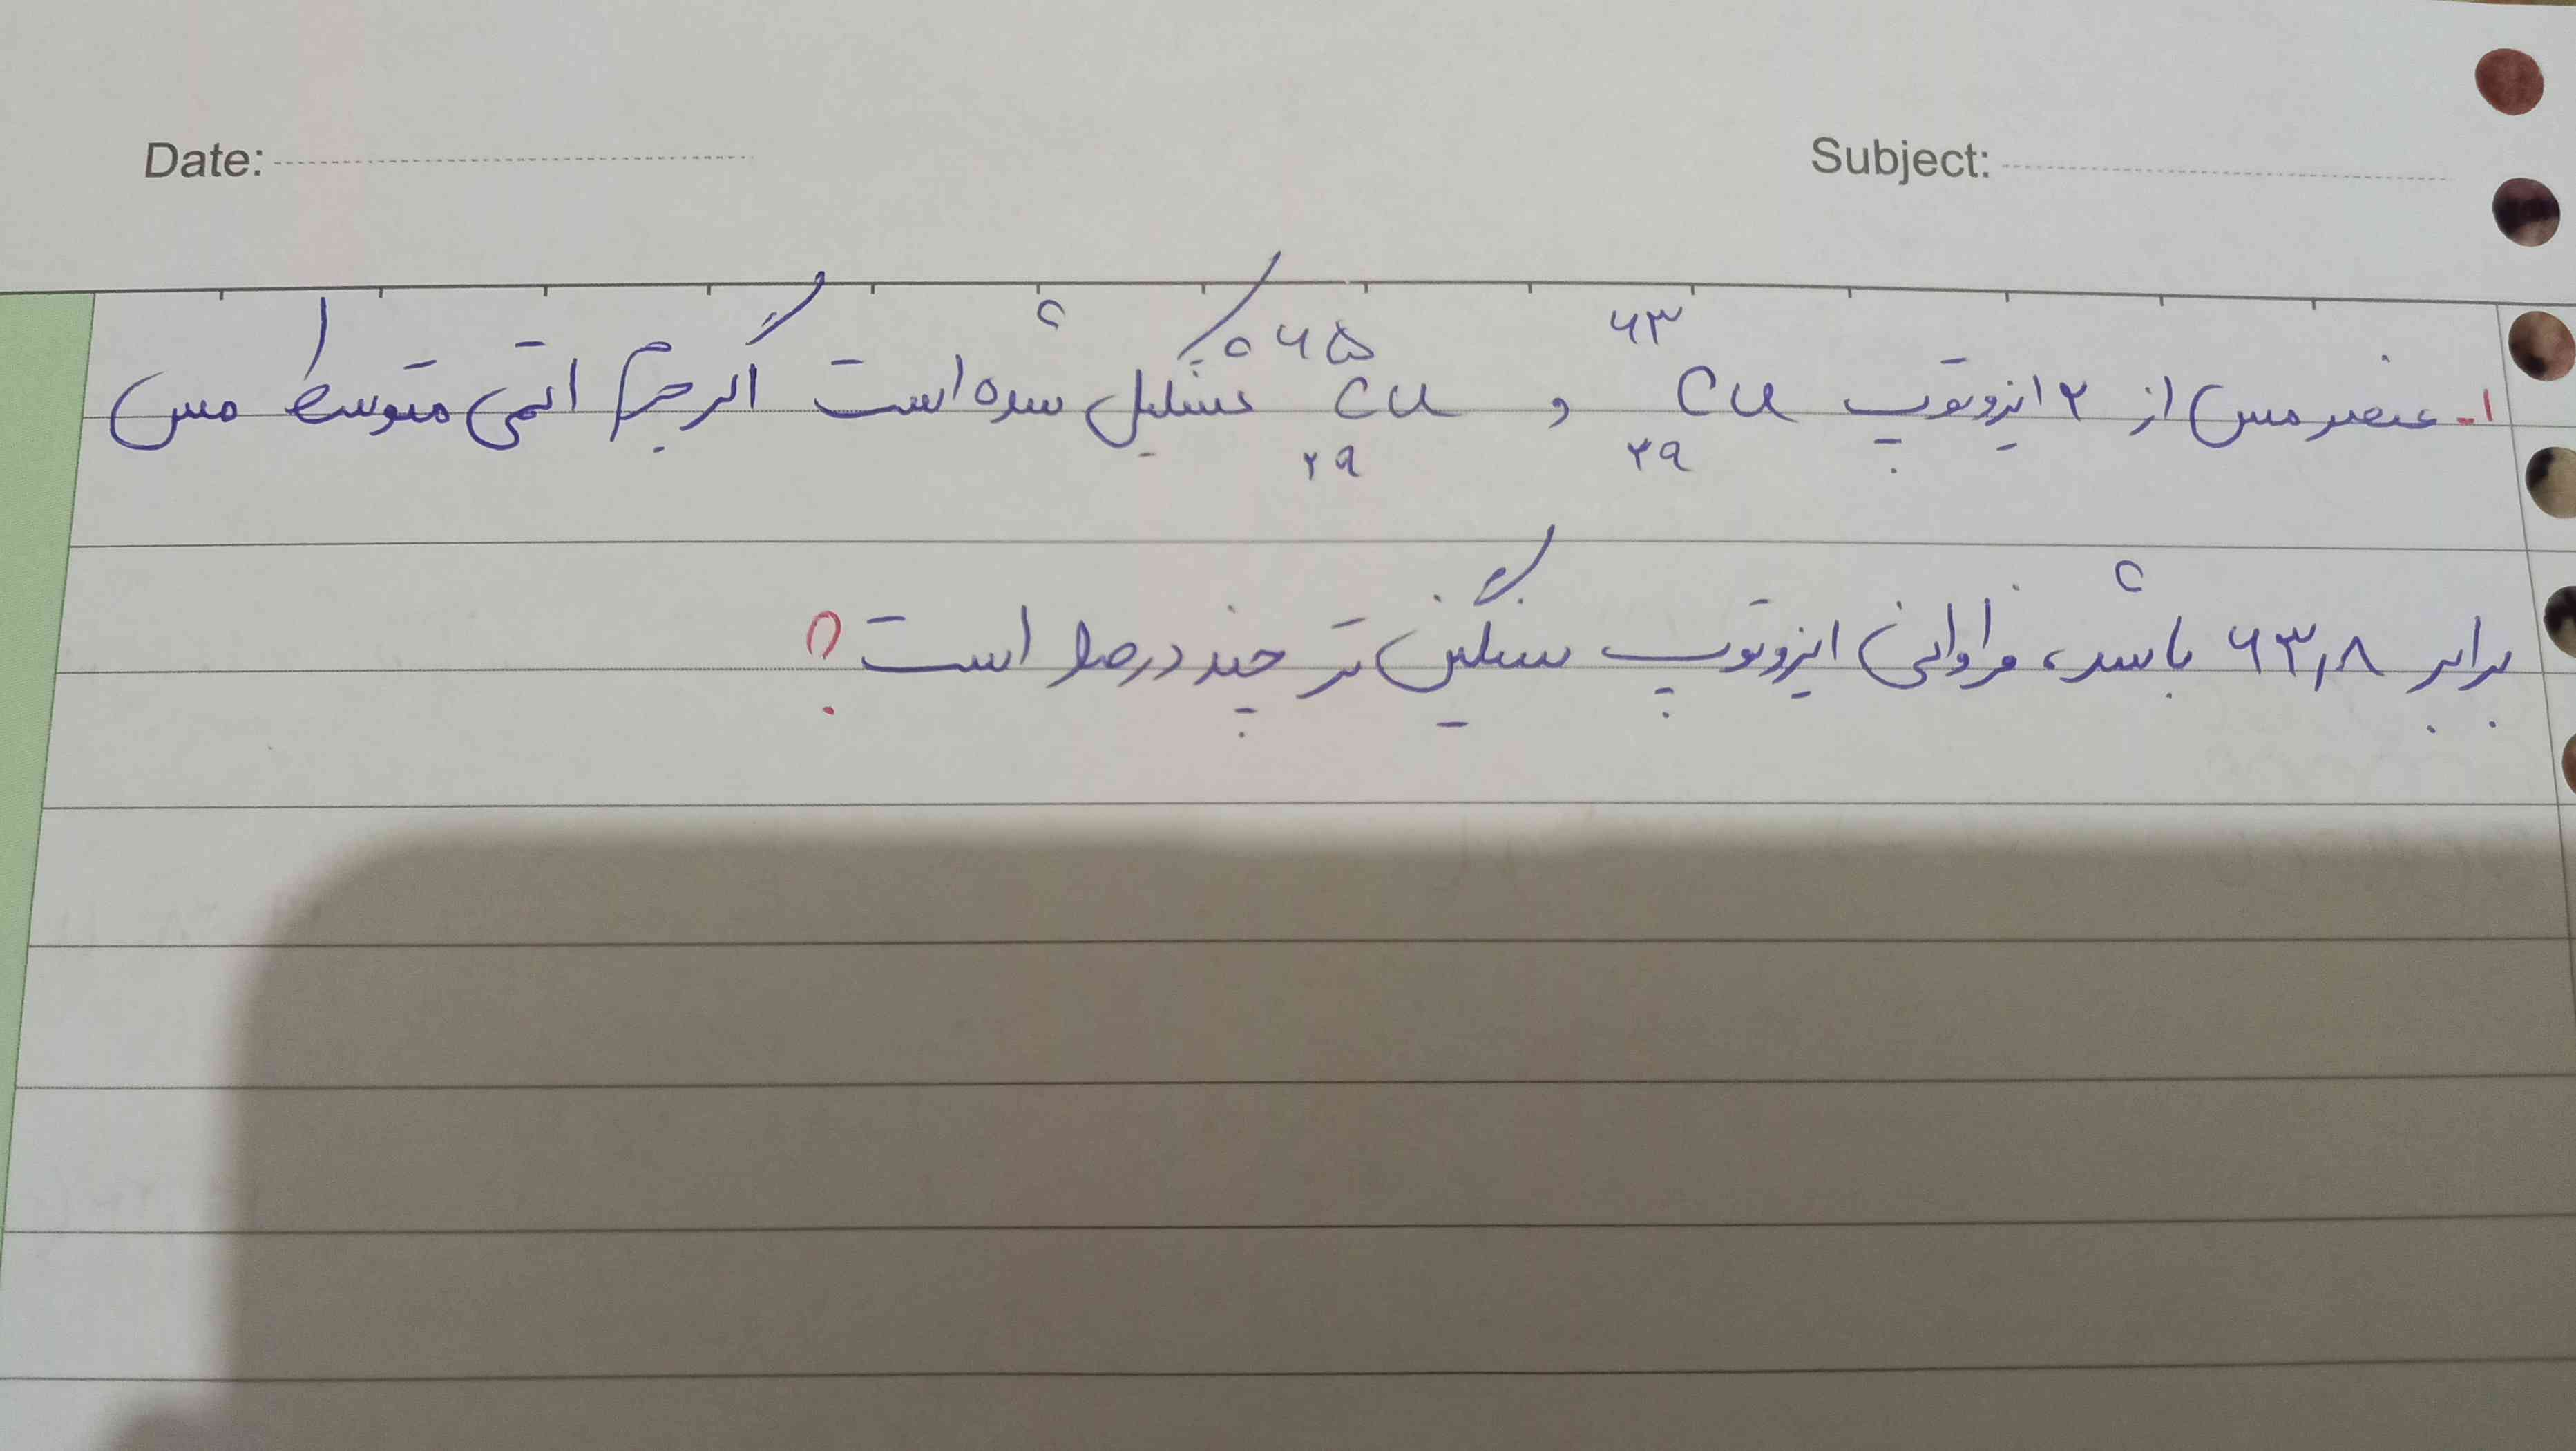 Date: Subject:
۱- عنصر مس از ۲ ایزوتوپ ⁶³₂₉Cu و ⁶⁵₂₉Cu تشکیل شده است اگر جرم اتمی متوسط مس
برابر ۶۳,۸ باشد، فراوانی ایزوتوپ سنگین تر چند درصد است؟